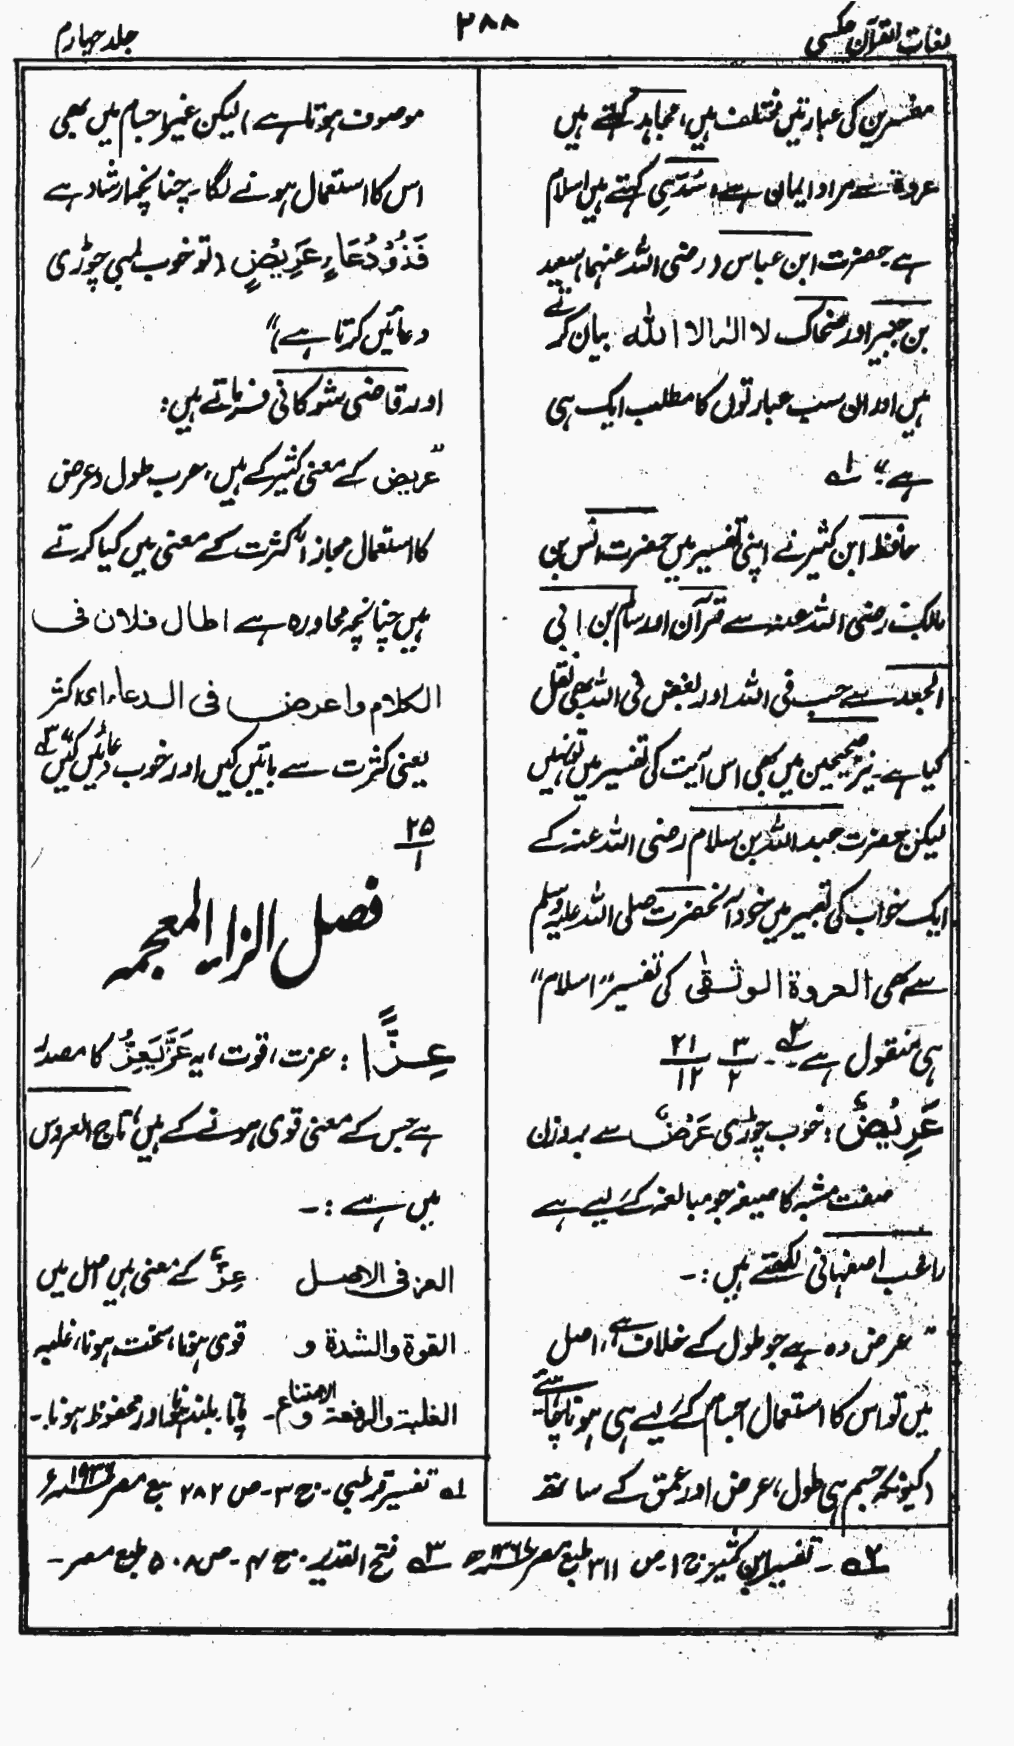 لغات القرآن عکسی
۲۸۸
جلد چہارم
مفسرین کی عبارتیں مختلف ہیں، مجاہد کہتے ہیں
عروۃ سے مراد ایمان ہے، سُدّی کہتے ہیں اسلام
ہے حضرت ابن عباس (رضی اللہ عنہما) سعید
بن جبیر اور ضحاک لا الٰہ الا اللہ بیان کرتے
ہیں اور ان سب عبارتوں کا مطلب ایک ہی
ہے" ۱ے
حافظ ابن کثیر نے اپنی تفسیر میں حضرت انس بن
مالک رضی اللہ عنہ سے قرآن اور سالم بن ابی
الجعد سے حب فی اللہ اور بغض فی اللہ بھی نقل
کیا ہے۔ نیز صحیحین میں بھی اس آیت کی تفسیر میں تو نہیں
لیکن حضرت عبد اللہ بن سلام رضی اللہ عنہ کے
ایک خواب کی تعبیر میں خود آنحضرت صلی اللہ علیہ وسلم
سے بھی العروۃ الوثقیٰ کی تفسیر "اسلام"
ہی منقول ہے ۲ے۔ ۳/۲ ۲۱/۱۲
عَرِیْضٌ : خوب چوڑی عَرْضٌ سے بروزن
صفت مشبہ کا صیغہ جو مبالغہ کے لیے ہے
راغب اصفہانی لکھتے ہیں :۔
"عرض وہ ہے جو طول کے خلاف ہے، اصل
میں تو اس کا استعمال اجسام کے لیے ہی ہونا چاہیے
(کیونکہ جسم ہی طول، عرض اور عمق کے ساتھ
موصوف ہوتا ہے) لیکن غیر اجسام میں بھی
اس کا استعمال ہونے لگا۔ چنانچہ ارشاد ہے
فَذُوْ دُعَاءٍ عَرِیْضٍ (تو خوب لمبی چوڑی
دعائیں کرتا ہے)"
اور قاضی شوکانی فرماتے ہیں:
"عریض کے معنی کثیر کے ہیں، عرب طول و عرض
کا استعمال مجازاً کثرت کے معنی میں کیا کرتے
ہیں چنانچہ محاورہ ہے اطال فلان فی
الکلام واعرض فی الدعاء ای اکثر
یعنی کثرت سے باتیں کیں اور خوب دعائیں کیں" ۳ے
۲۵/۱
فصل الزاء المعجمہ
عِزًّا : عزت، قوت، یہ عَزَّ یَعِزُّ کا مصدر
ہے جس کے معنی قوی ہونے کے ہیں، تاج العروس
میں ہے :۔
العز فی الاصل عِزٌّ کے معنی ہیں اصل میں
القوۃ والشدۃ و قوی ہونا، سخت ہونا، غلبہ
الغلبۃ والرفعۃ و الامتناع۔ پانا۔ بلند ہونا اور محفوظ ہونا۔
۱ے تفسیر قرطبی۔ ج ۳۔ ص ۲۸۲ طبع مصر ۱۹۳۶ء
۲ے۔ تفسیر ابن کثیر ج ۱ ص ۳۱۱ طبع مصر ۳ے فتح القدیر۔ ج ۴۔ ص ۵۰۸ طبع مصر۔